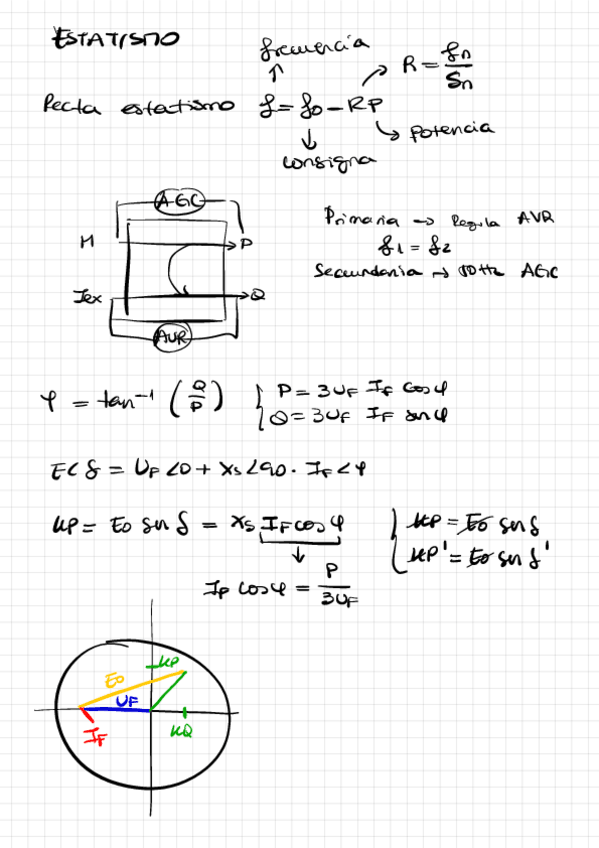 ESTATISMO
frecuencia
R = fn/Sn
Recta estatismo f = f0 - RP
potencia
consigna
AGC
M P
Iex Q
AVR
Primaria → Regula AVR
f1 = f2
Secundaria → 50Hz AGC
φ = tan⁻¹ (Q/P) { P = 3UF IF cosφ
Q = 3UF IF senφ
E<δ = UF<0 + Xs<90 · IF<φ
KP = E0 sen δ = Xs IF cosφ { KP = E0 sen δ
KP' = E0 sen δ'
IF cosφ = P/3UF
KP
E0
UF
IF
KQ